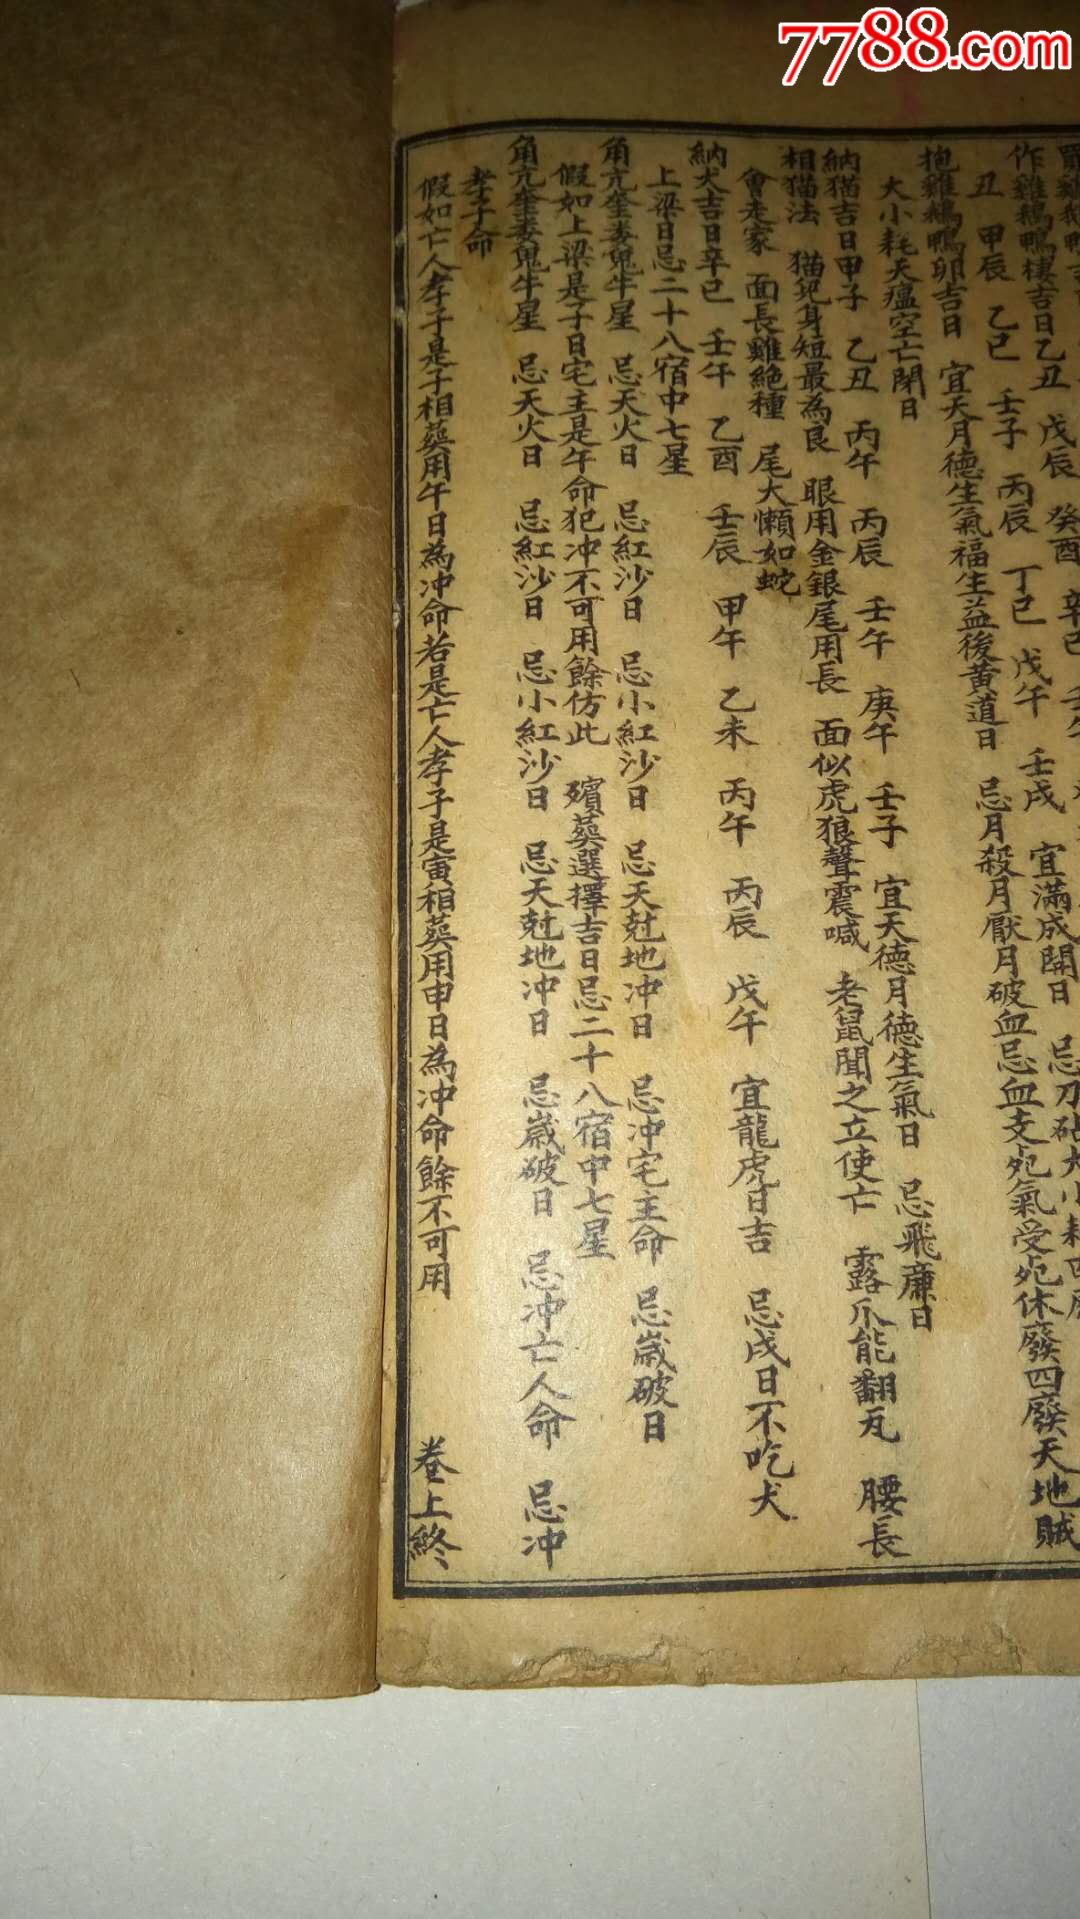 7788.com
作雞鵝鴨棲吉日乙丑 戊辰 癸酉 辛巳
丑 甲辰 乙巳 壬子 丙辰 丁巳 戊午 壬戌 宜滿成開日 忌刀砧大小耗四
抱雞鵝鴨卵吉日 宜天月德生氣福生益後黃道日 忌月殺月厭月破血忌血支死氣受死休廢四廢天地賊
大小耗天瘟空亡閉日
納猫吉日甲子 乙丑 丙午 丙辰 壬午 庚午 壬子 宜天德月德生氣日 忌飛廉日
相猫法 猫兒身短最為良 眼用金銀尾用長 面似虎狼聲震喊 老鼠聞之立使亡 露爪能翻瓦 腰長
會走家 面長雞絕種 尾大懶如蛇
納犬吉日辛巳 壬午 乙酉 壬辰 甲午 乙未 丙午 丙辰 戊午 宜龍虎日吉 忌戌日不吃犬
上梁日忌二十八宿中七星
角亢奎婁鬼牛星 忌天火日 忌紅沙日 忌小紅沙日 忌天尅地冲日 忌冲宅主命 忌歲破日
假如上梁是子日宅主是午命犯冲不可用餘仿此 殯葬選擇吉日忌二十八宿中七星
角亢奎婁鬼牛星 忌天火日 忌紅沙日 忌小紅沙日 忌天尅地冲日 忌歲破日 忌冲亡人命 忌冲
孝子命
假如亡人孝子是子相葬用午日為冲命若是亡人孝子是寅相葬用申日為冲命餘不可用 卷上終